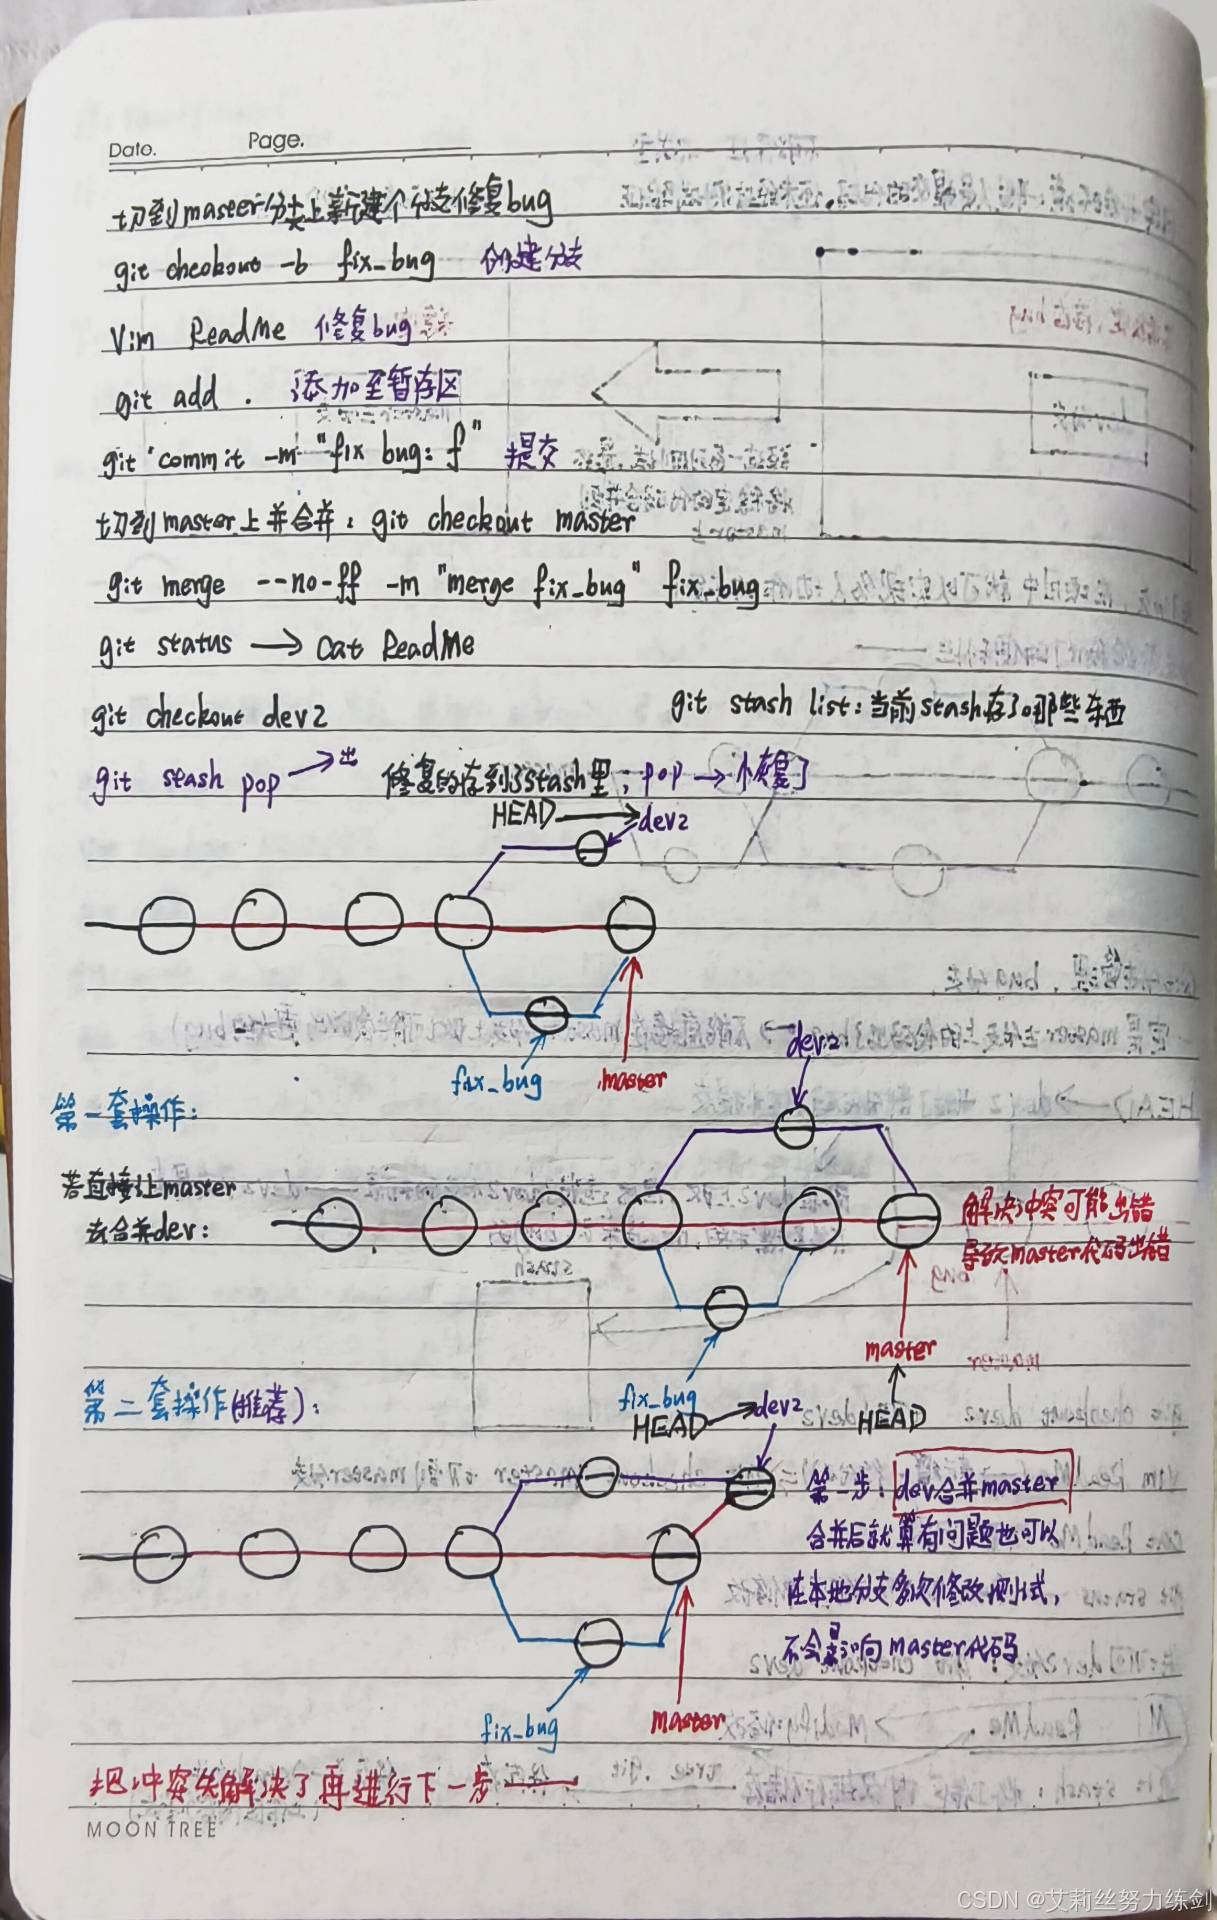 Date. Page.
切到master分支上新建个分支修复bug
git checkout -b fix_bug 创建分支
Vim ReadMe 修复bug
git add . 添加至暂存区
git commit -m "fix bug: f" 提交
切到master上并合并: git checkout master
git merge --no-ff -m "merge fix_bug" fix_bug
git status → cat ReadMe
git checkout dev2 git stash list: 当前stash存了哪些东西
git stash pop → 出 修复的存到了stash里; pop → 恢复了
HEAD → dev2
fix_bug master
dev2
第一套操作:
若直接让master
去合并dev:
解决冲突可能出错
导致master代码出错
master
fix_bug
HEAD
第二套操作(推荐):
HEAD → dev2
第一步: dev合并master
合并后就算有问题也可以
在本地分支多次修改测试,
不会影响master代码
fix_bug master
把冲突先解决了再进行下一步
MOON TREE
CSDN @艾莉丝努力练剑